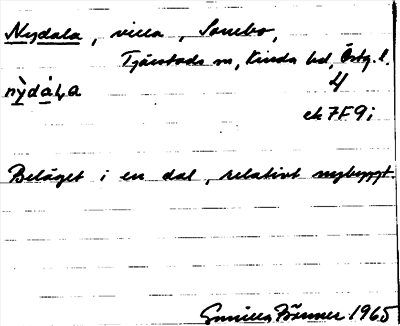 Nydala, villa, Sonebo,
Tjärstads sn, Kinda hd, Östg. l.
nỳdàla 4
ek 7F9i
Beläget i en dal, relativt nybyggt.
Gunilla Brömner 1965